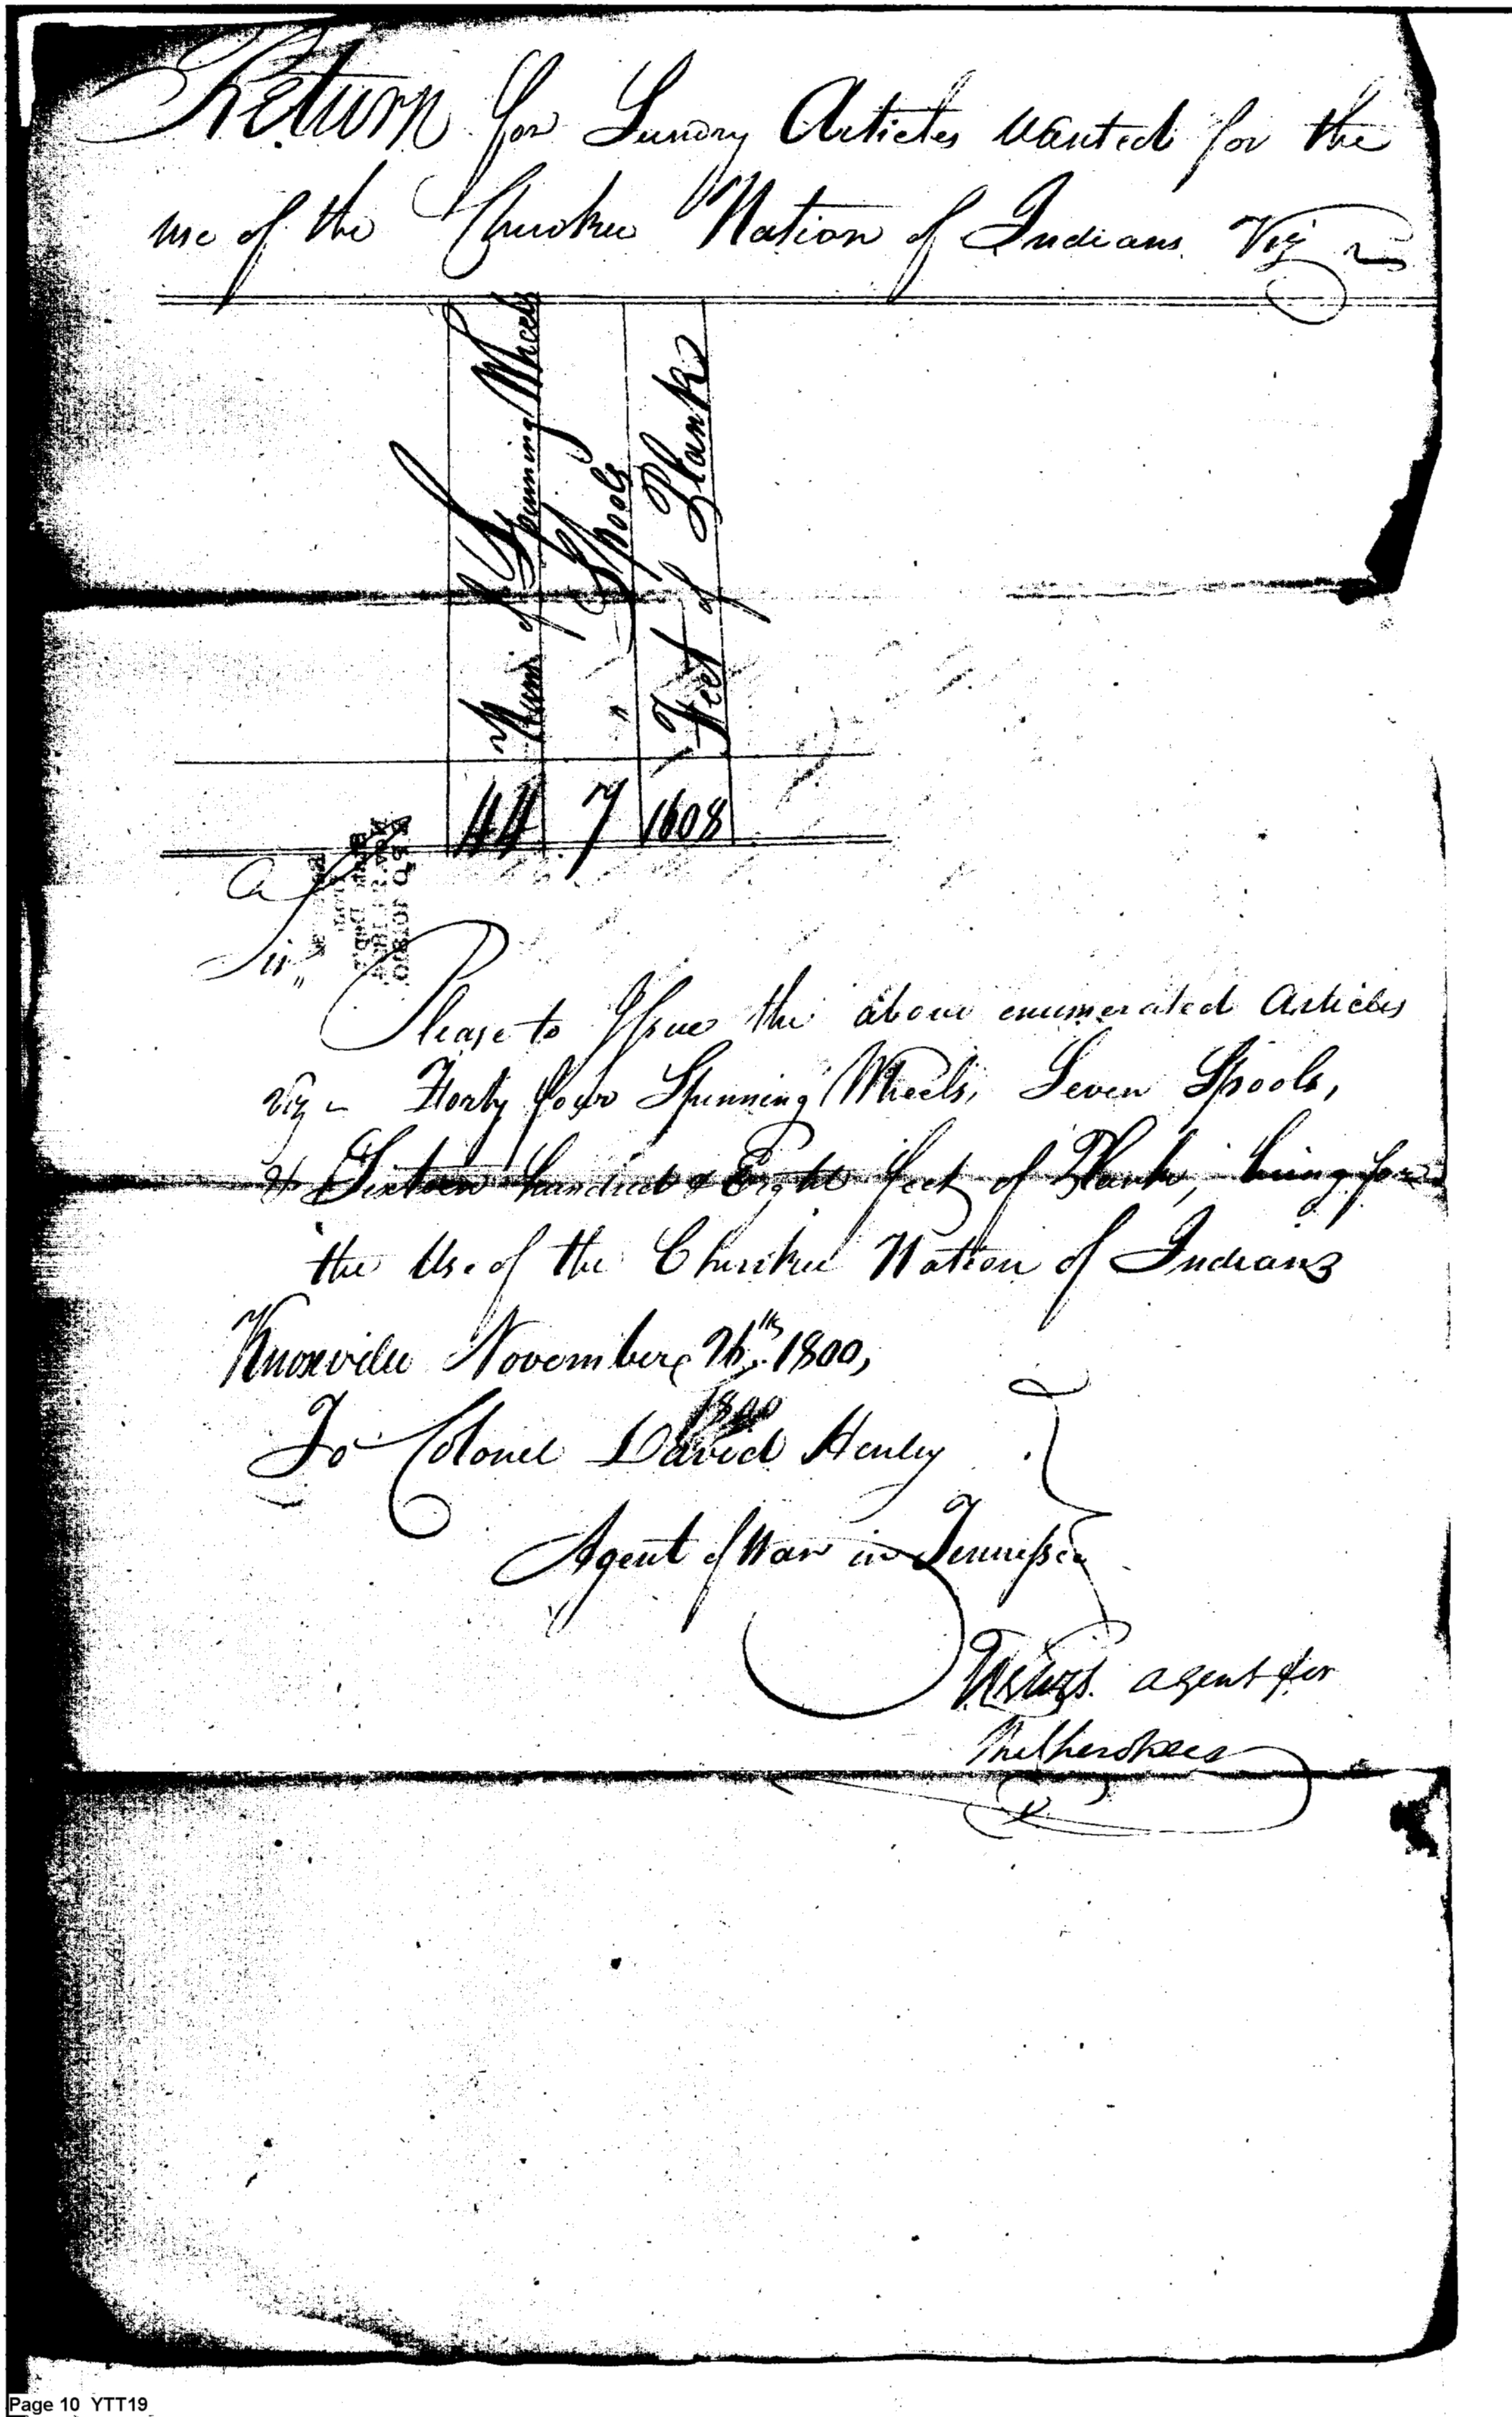 Return for Sundry Articles wanted for the
use of the Cherokee Nation of Indians Viz
Num. of Spinning Wheels
" Spools
Feet of Plank
44 7 1608
Sir,,
Please to Issue the above enumerated Articles
viz - Forty four Spinning Wheels, Seven Spools,
& Sixteen hundred & Eight feet of Plank, being for
the Use of the Cherokee Nation of Indians
Knoxville November 26th 1800,
1800
To Colonel David Henley
Agent of War in Tennessee
agent for
the Cherokees
Page 10 YTT19